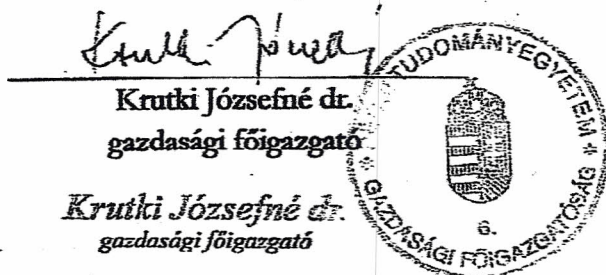 Krutki Józsefné
Krutki Józsefné dr.
gazdasági főigazgató
Krutki Józsefné dr.
gazdasági főigazgató
TUDOMÁNYEGYETEM * GAZDASÁGI FŐIGAZGATÓSÁG *
6.